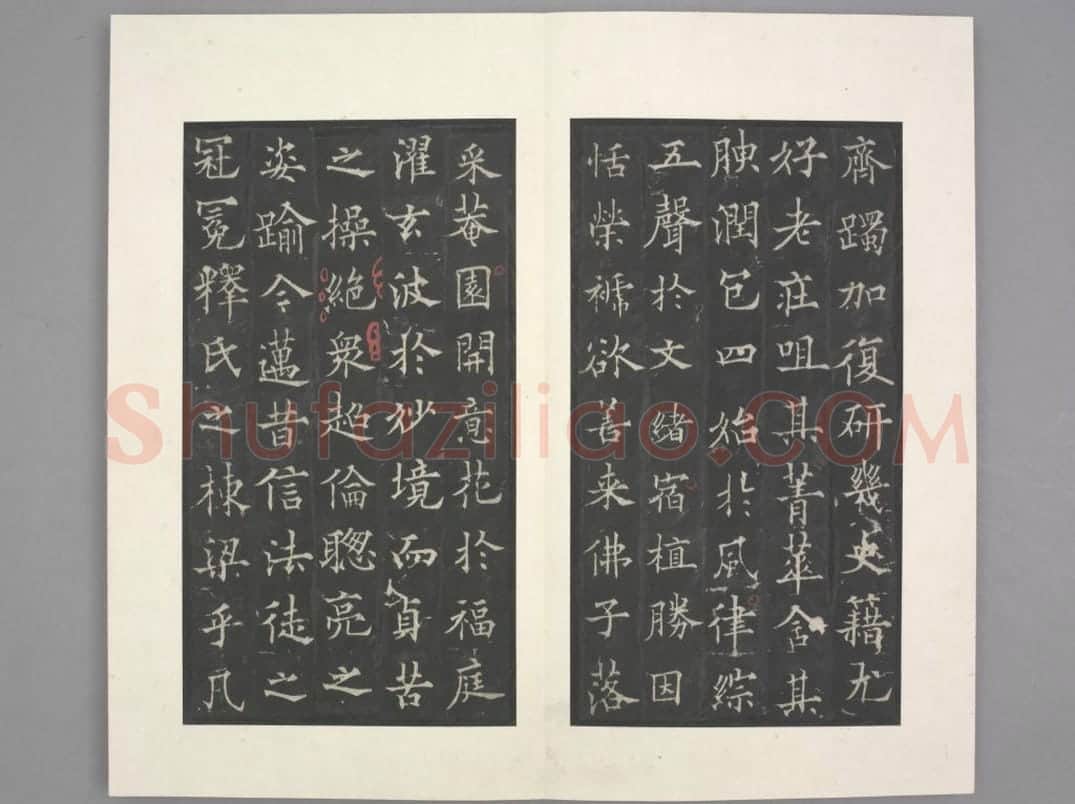 齊躅加復研幾史籍尤
好老莊咀其菁華含其
腴潤包四始於風律綜
五聲於文緒宿植勝因
恬榮褫欲善来佛子落
采菴園開意花於福庭
濯玄波於妙境而貞苦
之操絶衆超倫聰亮之
姿踰今邁昔信法徒之
冠冕釋氏之棟梁乎凡
Shufaziliao.COM